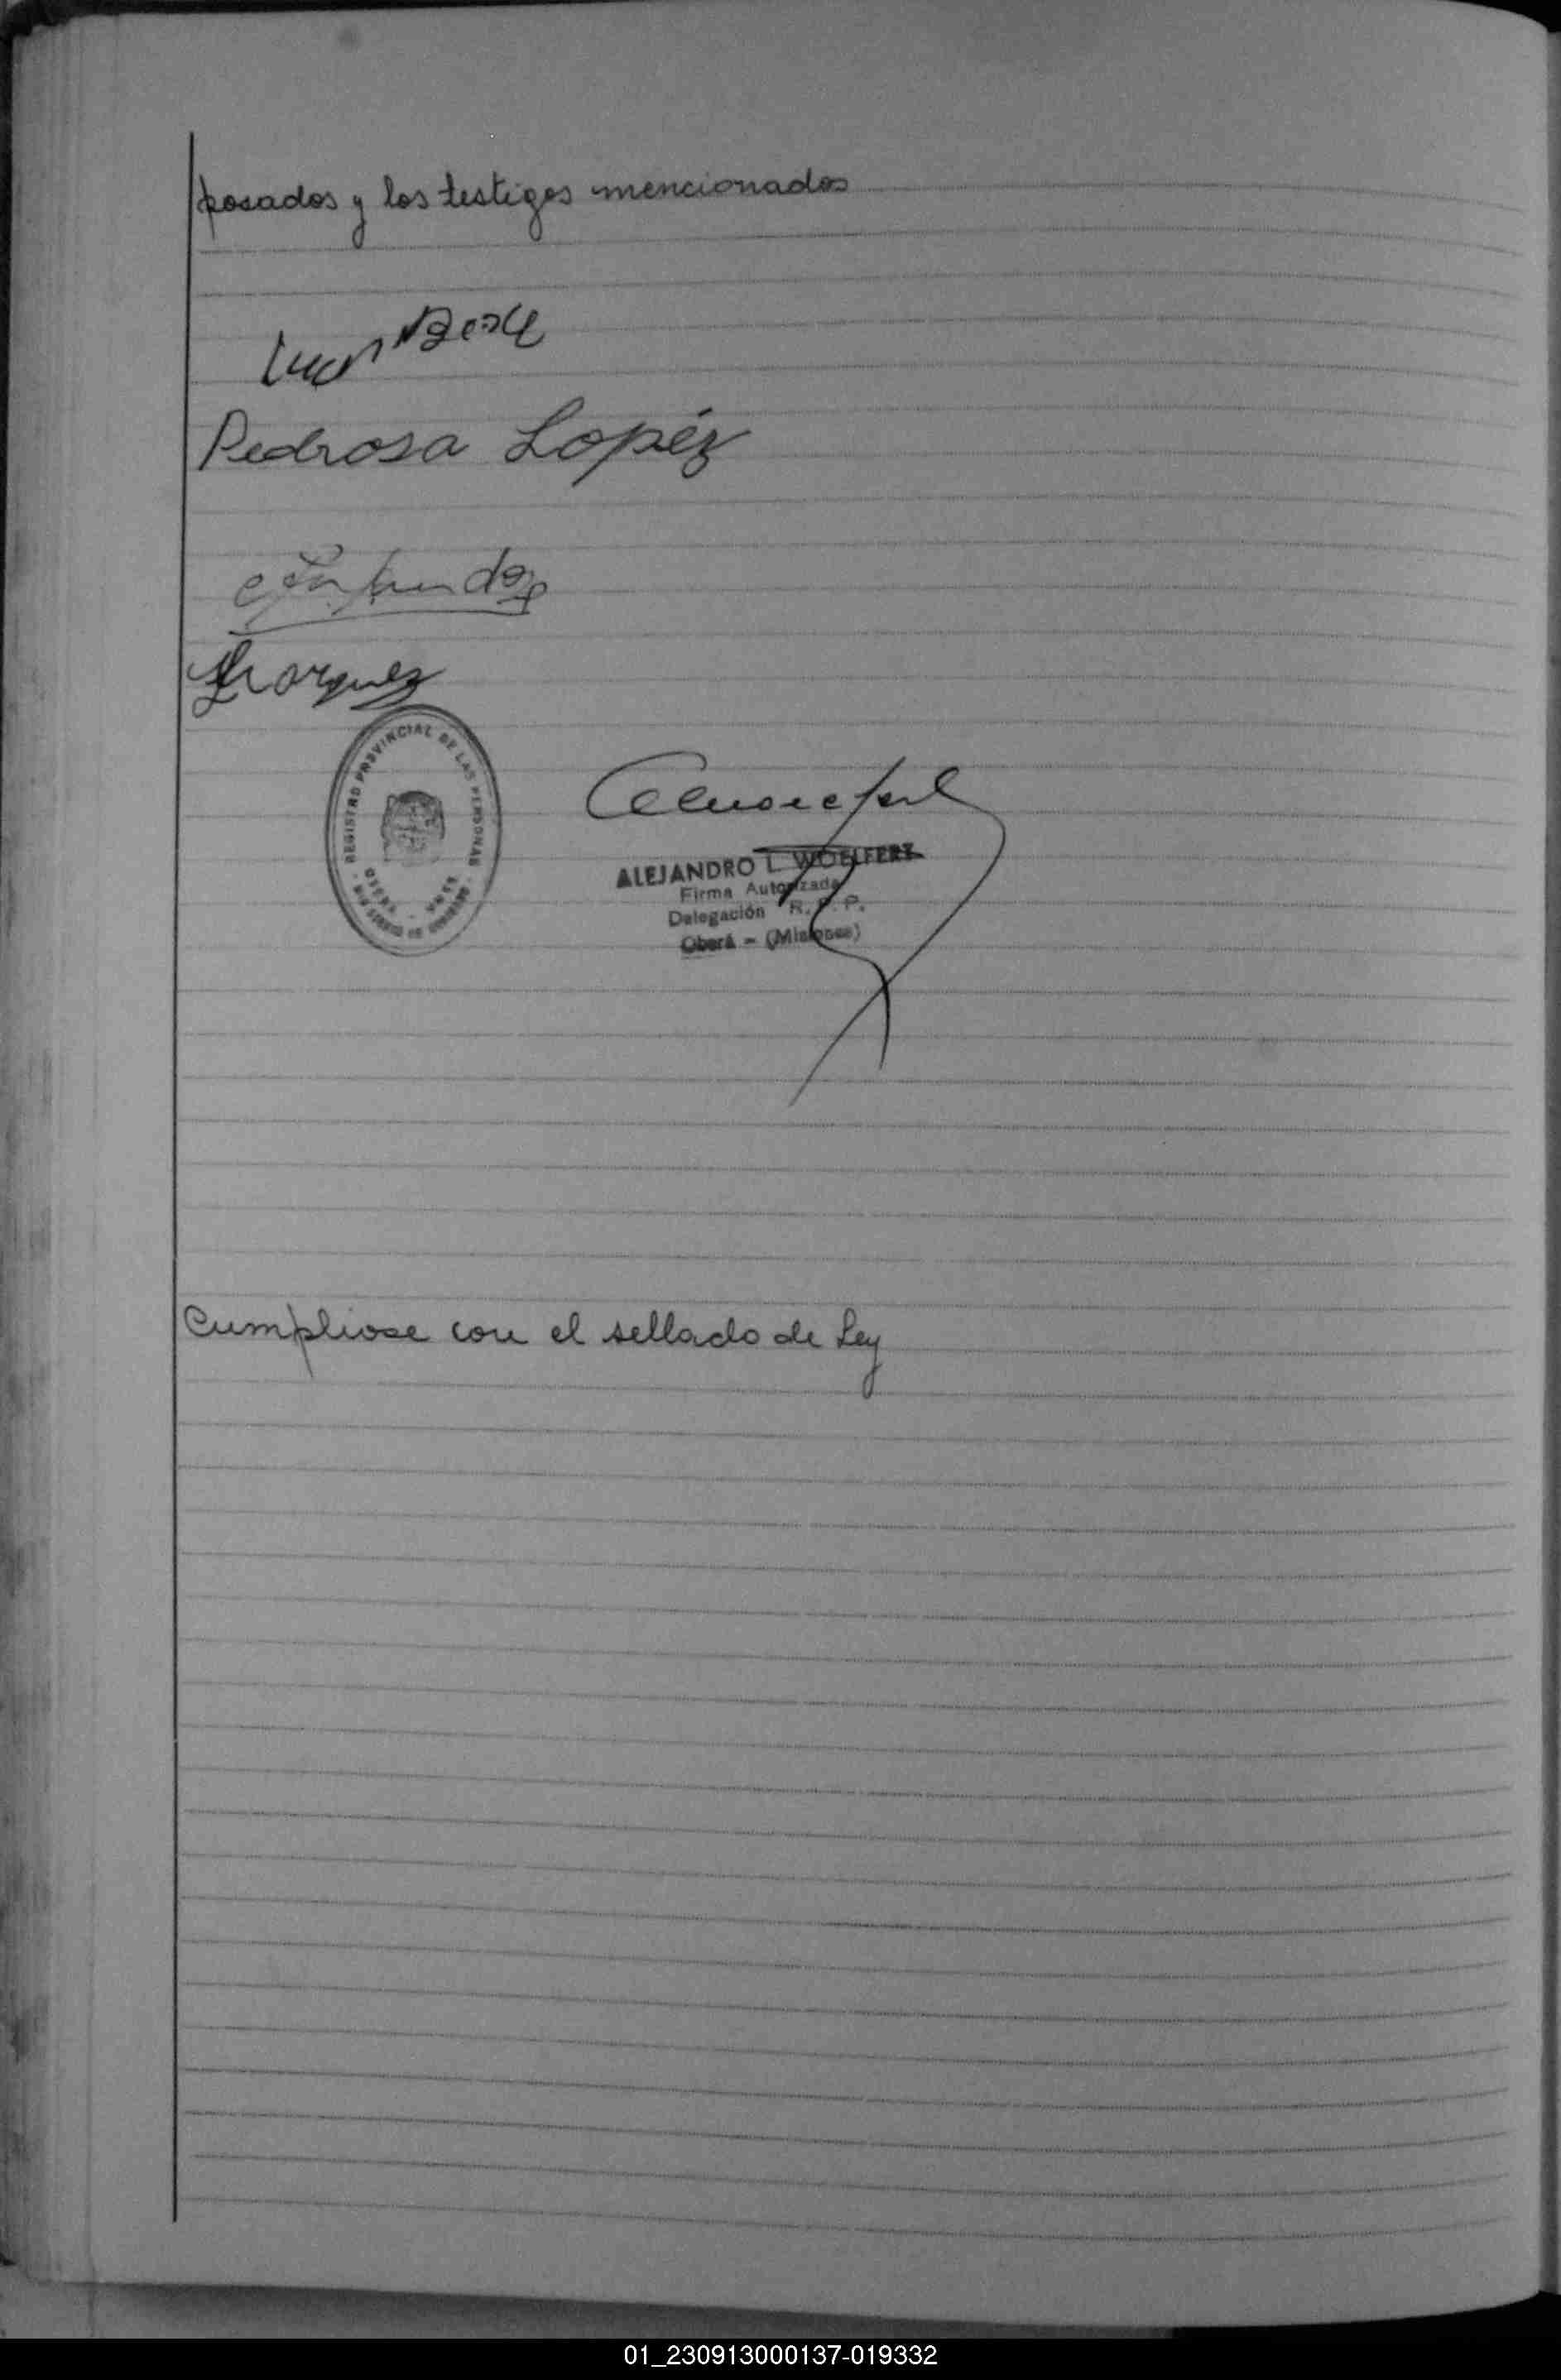 posados y los testigos mencionados
Pedrosa Lopéz
Marquez
REGISTRO PROVINCIAL DE LAS PERSONAS
ALEJANDRO L. WOELFERT
Firma Autorizada
Delegación R.P.P.
Oberá - (Misiones)
Cumpliose con el sellado de Ley
01_230913000137-019332